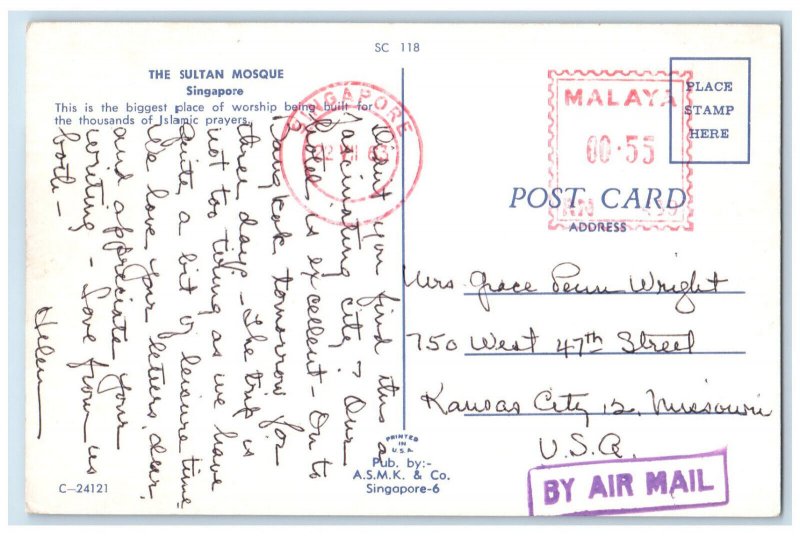 SC 118
THE SULTAN MOSQUE
Singapore
This is the biggest place of worship being built for
the thousands of Islamic prayers.
SINGAPORE
MALAYA
00·55
PLACE
STAMP
HERE
POST CARD
ADDRESS
Didn't you find this a
fascinating city? Our
hotel is excellent - On to
Bangkok tomorrow for
three days - The trip is
not too tiring as we have
quite a bit of leisure time.
We love your letters, dear,
and appreciate your
writing - Love from us
both -
Helen
Mrs. Grace Penn Wright
750 West 47th Street
Kansas City 12, Missouri
U.S.A.
BY AIR MAIL
PRINTED
IN
U.S.A.
Pub. by:-
A.S.M.K. & Co.
Singapore-6
C-24121